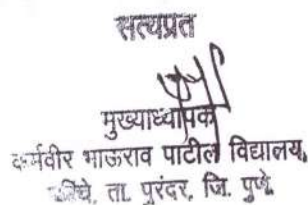 सत्यप्रत
मुख्याध्यापक
कर्मवीर भाऊराव पाटील विद्यालय,
ता. पुरंदर, जि. पुणे.